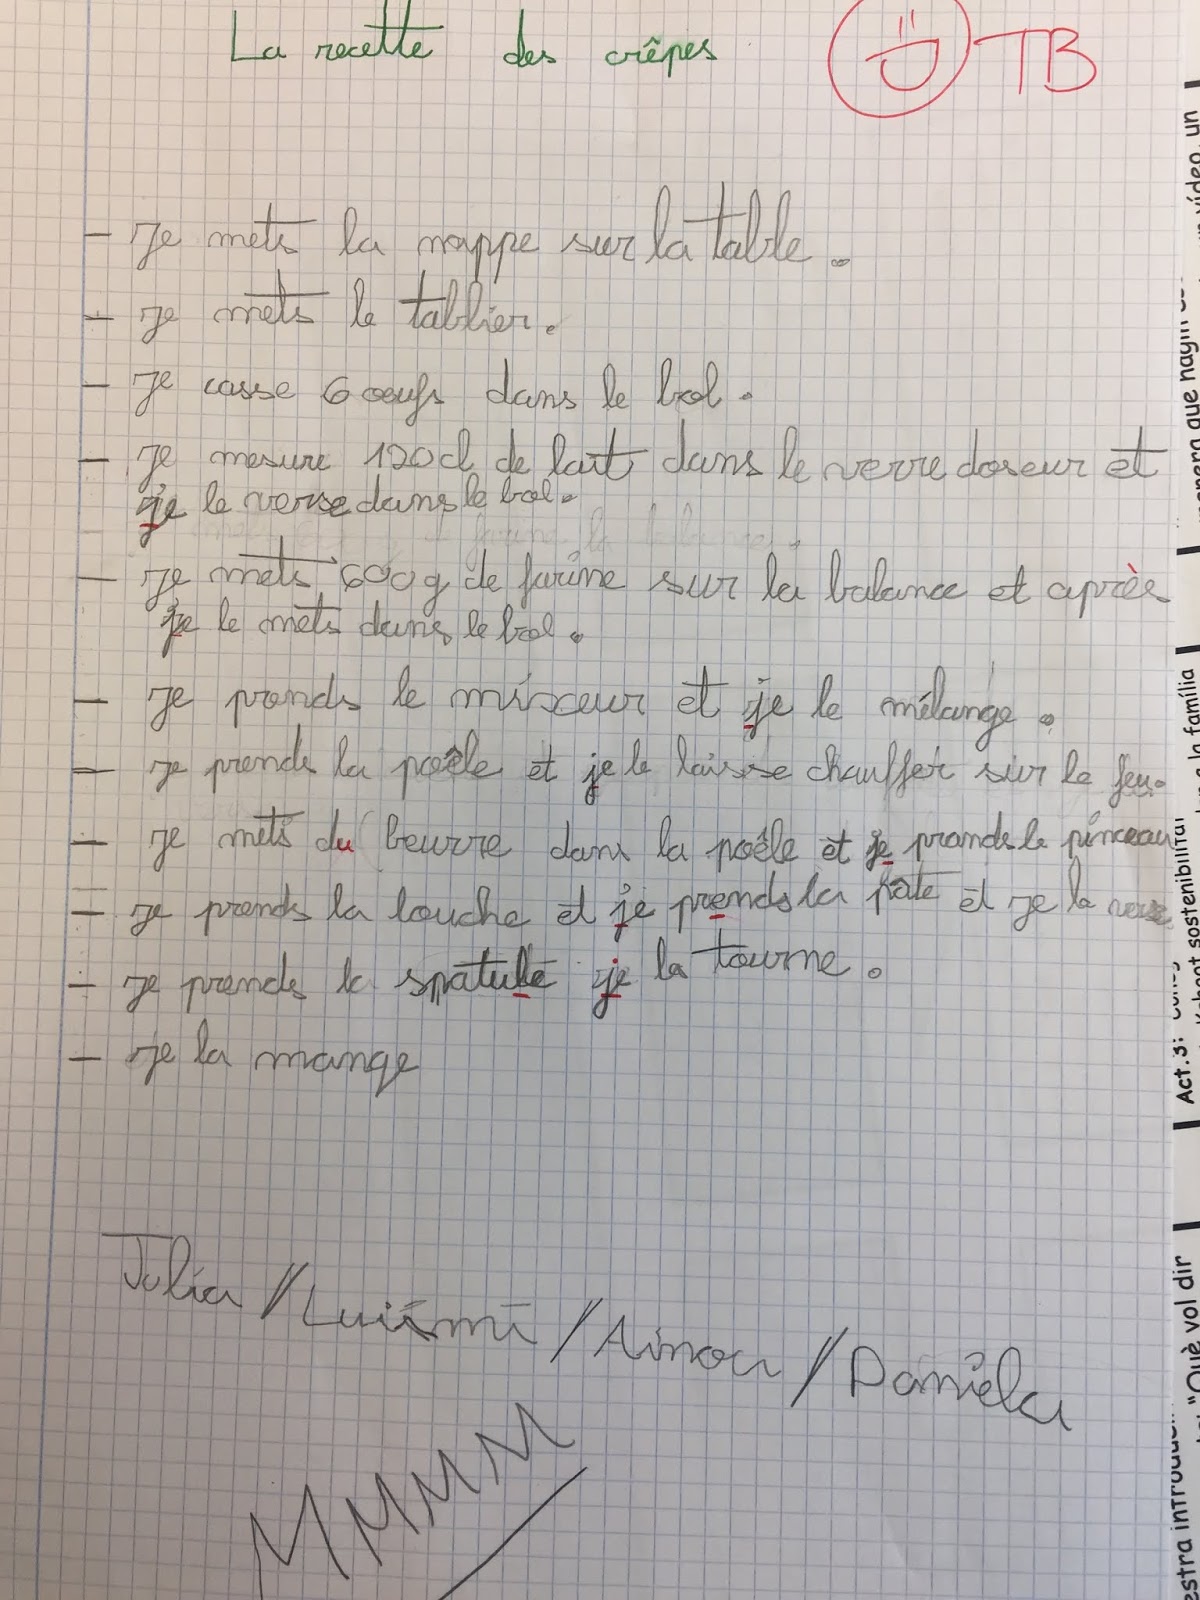 La recette des crêpes TB
- Je mets la nappe sur la table.
- Je mets le tablier.
- Je casse 6 oeufs dans le bol.
- Je mesure 120cl de lait dans le verre doseur et
je le verse dans le bol.
- Je mets 600g de farine sur la balance et après
je le mets dans le bol.
- Je prends le mixeur et je le mélange.
- Je prends la poêle et je le laisse chauffer sur le feu.
- Je mets du beurre dans la poêle et je prends le pinceau
- Je prends la louche et je prends la pâte et je la verse
- Je prends la spatule je la tourne.
- Je la mange
Julia / Luismi / Ainoa / Daniela
MMMM
Act.3:
sostenibilitat
la família
vídeo, un
"Què vol dir